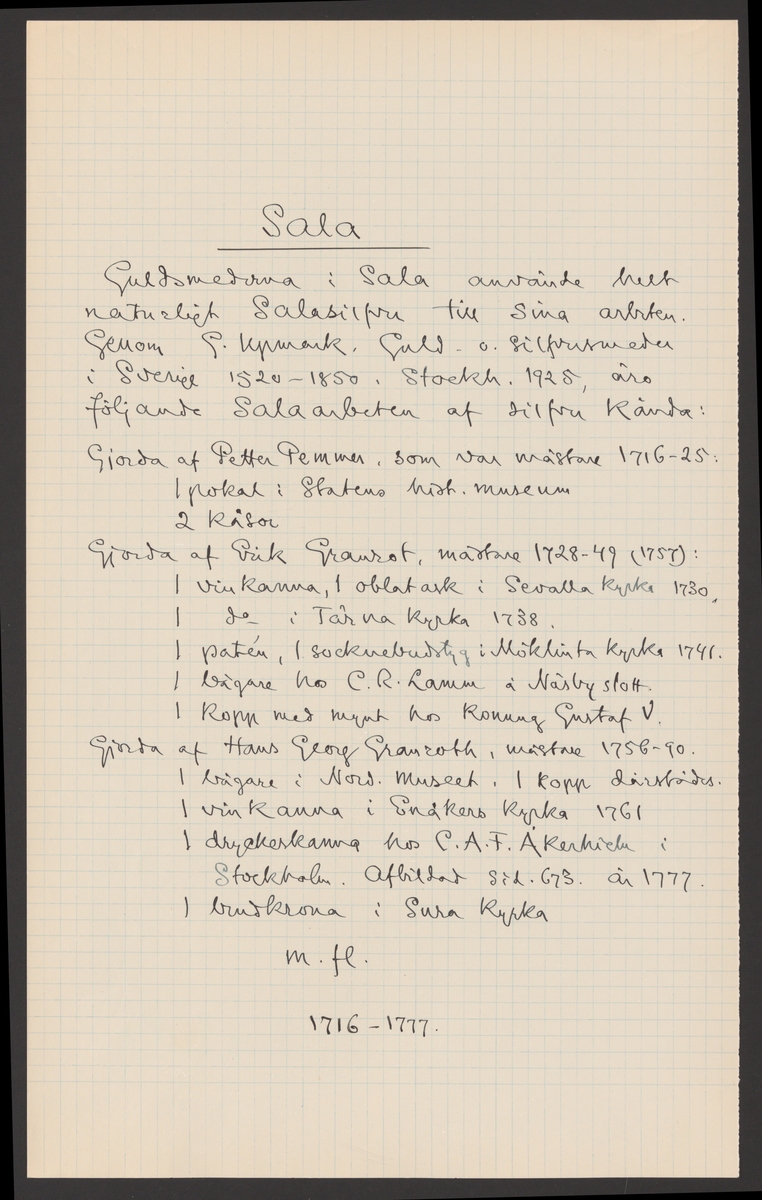 Sala
Guldsmederna i Sala använde helt
naturligt Salasilfru till sina arbeten.
Genom G. Upmark. Guld- o. Silfversmeder
i Sverige 1520-1850. Stockh. 1925, äro
följande Salaarbeten af silfru kända:
Gjorda af Petter Pemmer, som var mästare 1716-25:
1 pokal i Statens hist. museum
2 kåsor
Gjorda af Erik Granrot, mästare 1728-49 (1757):
1 vinkanna, 1 oblatask i Sevalla kyrka 1730,
1 do i Tärna kyrka 1738.
1 patén, 1 socknebudstyg i Möklinta kyrka 1741.
1 bägare hos C.R. Lamm å Näsby slott.
1 kopp med mynt hos Konung Gustaf V.
Gjorda af Hans Georg Granroth, mästare 1756-90.
1 bägare i Nord. Museet. 1 kopp därstädes.
1 vinkanna i Enåkers kyrka 1761
1 dryckeskanna hos C.A.F. Åkerhielm i
Stockholm. Afbildad sid. 673. år 1777.
1 brudkrona i Sura kyrka
m. fl.
1716-1777.